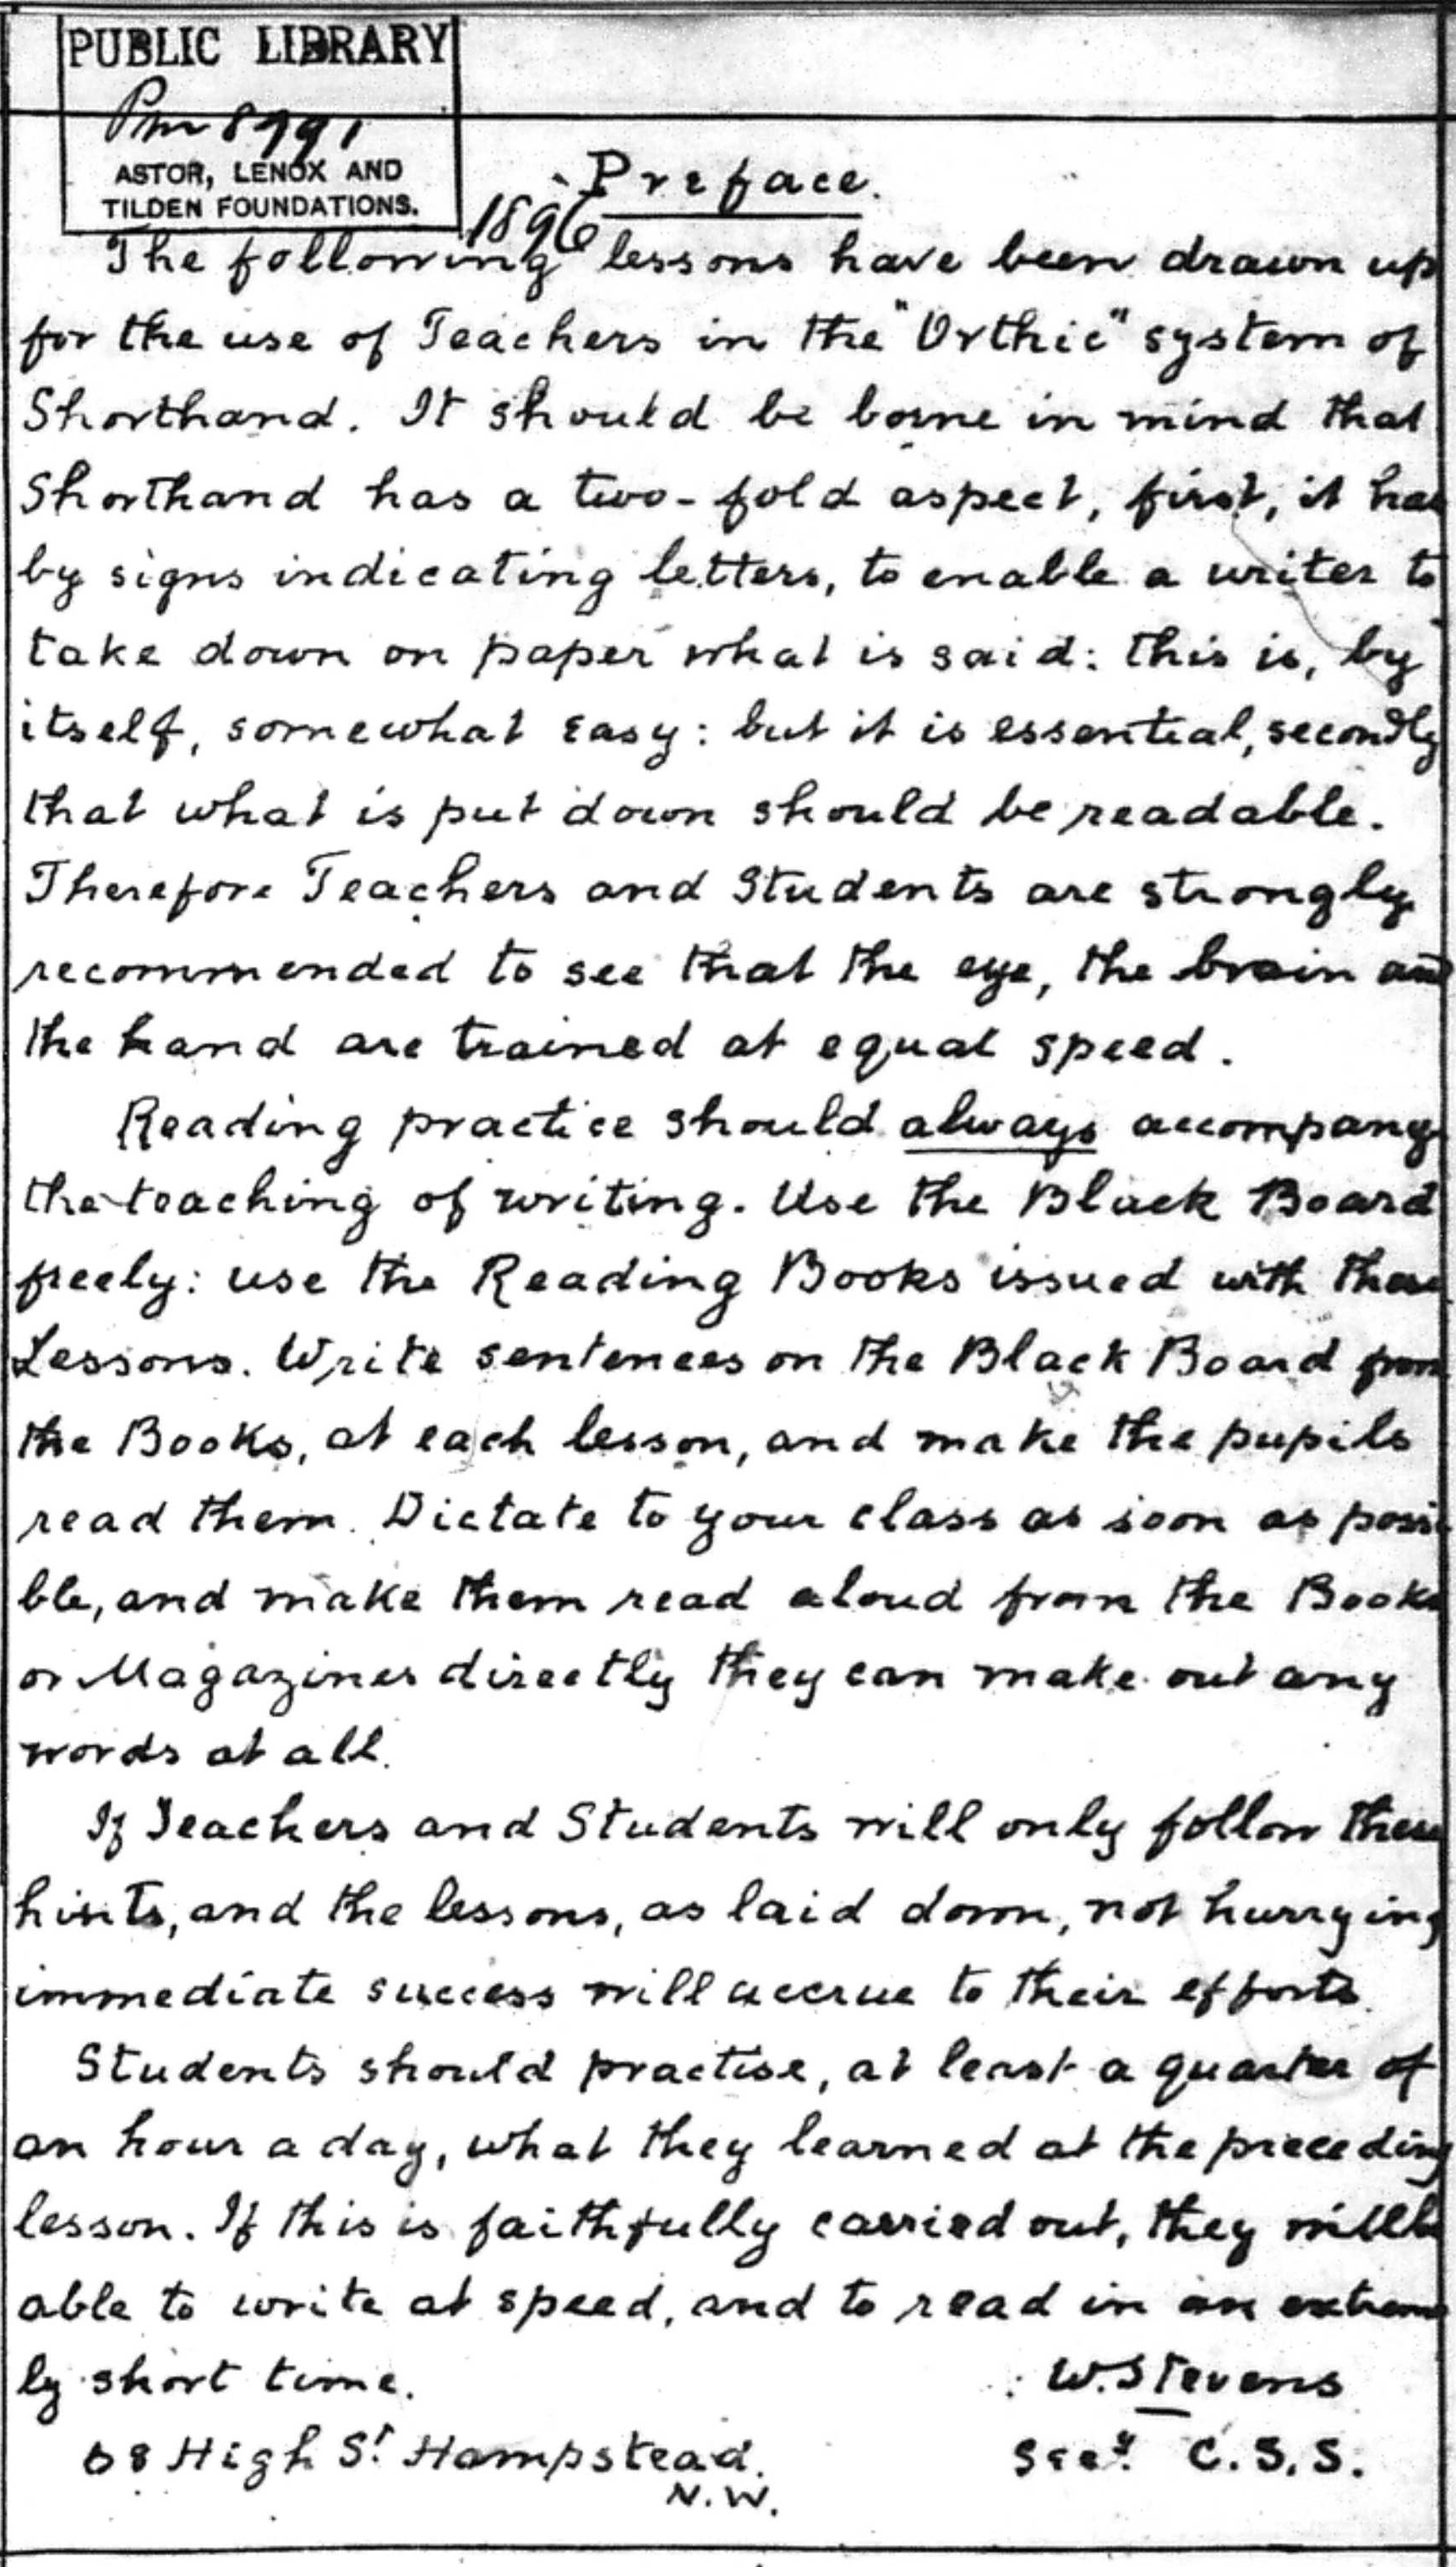 PUBLIC LIBRARY
ASTOR, LENOX AND
TILDEN FOUNDATIONS.
1896
Preface.
The following lessons have been drawn up
for the use of Teachers in the "Orthic" system of
Shorthand. It should be borne in mind that
Shorthand has a two-fold aspect, first, it has
by signs indicating letters, to enable a writer to
take down on paper what is said: this is, by
itself, somewhat easy: but it is essential, secondly
that what is put down should be readable.
Therefore Teachers and Students are strongly
recommended to see that the eye, the brain and
the hand are trained at equal speed.
Reading practice should always accompany
the teaching of writing. Use the Black Board
freely: use the Reading Books issued with these
Lessons. Write sentences on the Black Board from
the Books, at each lesson, and make the pupils
read them. Dictate to your class as soon as possi
ble, and make them read aloud from the Books
or Magazines directly they can make out any
words at all.
If Teachers and Students will only follow these
hints, and the lessons, as laid down, not hurrying
immediate success will accrue to their efforts.
Students should practise, at least a quarter of
an hour a day, what they learned at the preceding
lesson. If this is faithfully carried out, they will be
able to write at speed, and to read in an extreme
ly short time.
W. Stevens
68 High St. Hampstead. Secy. C.S.S.
N.W.